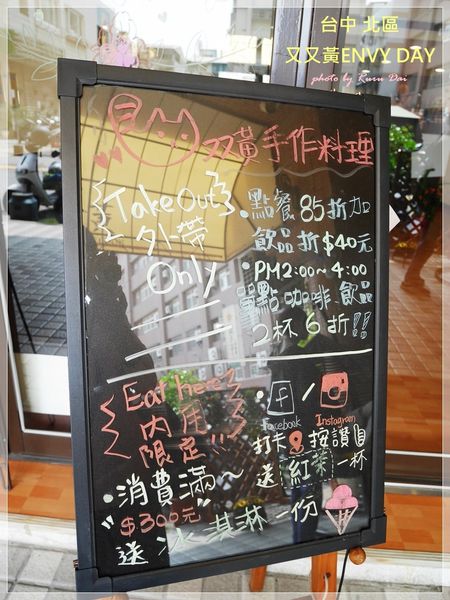 台中 北區
又又黃ENVY DAY
photo by Ruru Dai
双黃手作料理
Take Out
外帶
Only
・點餐85折加
飲品折$40元
・PM2:00~4:00
單點咖啡飲品
2杯6折!!
Eat here
內用
限定!!!
・消費滿~
"$300元"
送冰淇淋一份
・f/
Facebook
Instagram
打卡按讚
送紅茶一杯